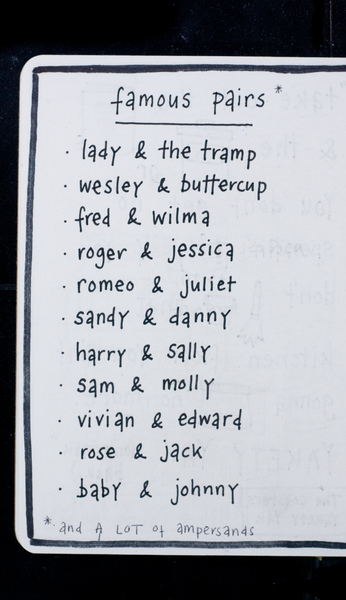 famous pairs *
· lady & the tramp
· wesley & buttercup
· fred & wilma
· roger & jessica
· romeo & juliet
· sandy & danny
· harry & sally
· sam & molly
· vivian & edward
· rose & jack
· baby & johnny
* and A LOT of ampersands